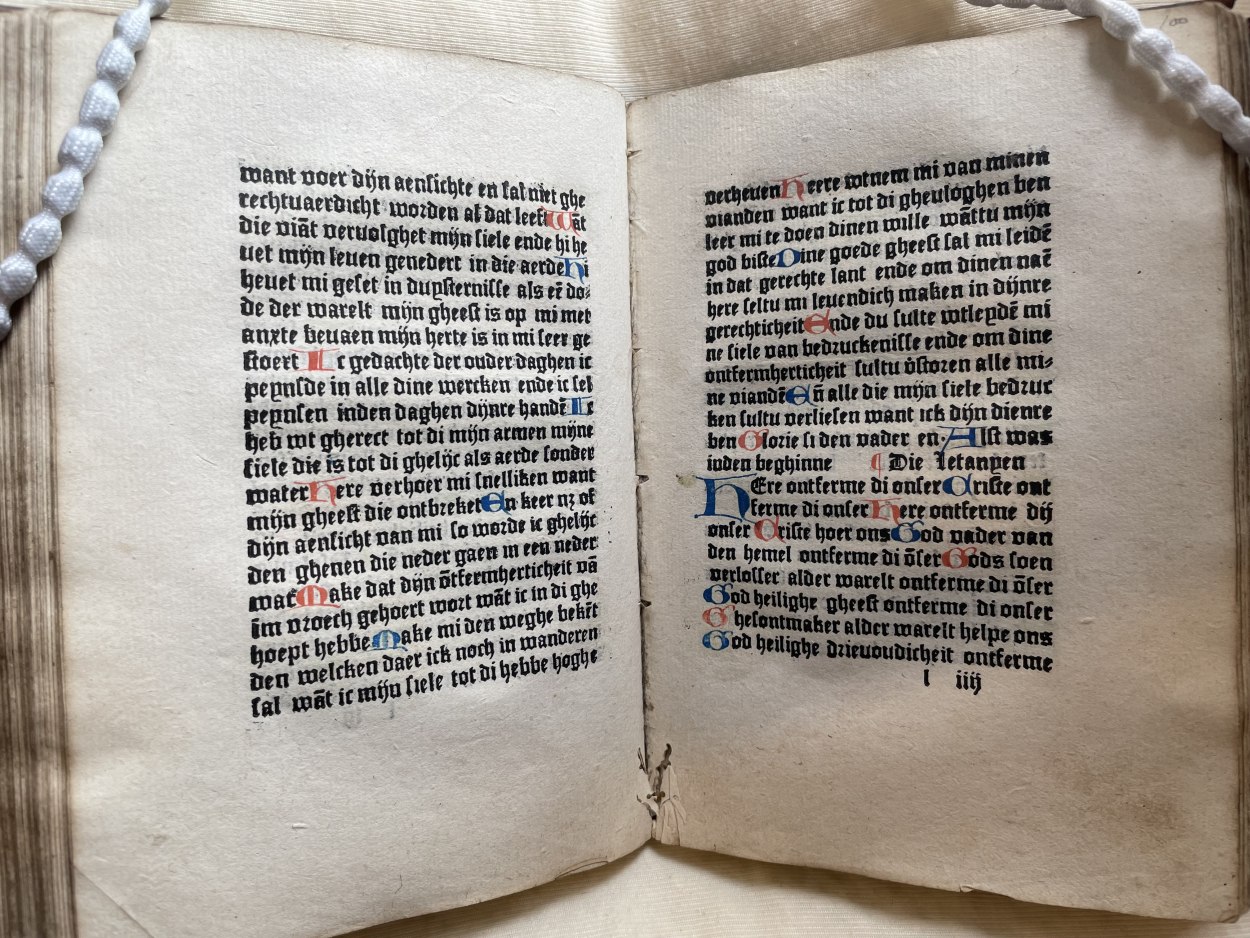 want voer dijn aensichte en sal niet ghe
rechtuaerdicht worden al dat leeft Wāt
die viāt veruolghet mijn siele ende hi he
uet mijn leuen genedert in die aerde Hi
heuet mi geset in duysternisse als eē do⸗
de der warelt mijn gheest is op mi met
anxte beuaen mijn herte is in mi seer ge
stoert Ic gedachte der ouder daghen ic
peynsde in alle dine wercken ende ic sel
peynsen inden daghen dijnre handē Ic
heb wt gherect tot di mijn armen mijne
siele die is tot di ghelijc als aerde sonder
water Here verhoer mi snelliken want
mijn gheest die ontbreket En keer nz of
dijn aensicht van mi so worde ic ghelijc
den ghenen die neder gaen in een neder
wat Make dat dijn ōtfermherticheit vā
im vroech gehoert wort wāt ic in di ghe
hoept hebbe Make mi den weghe bekēt
den welcken daer ick noch in wanderen
sal wāt ic mijn siele tot di hebbe hoghe
verheuen Heere wtnem mi van minen
vianden want ic tot di gheuloghen ben
leer mi te doen dinen wille wāttu mijn
god biste Dine goede gheest sal mi leidē
in dat gerechte lant ende om dinen naē
here seltu mi leuendich maken in dijnre
gerechticheit Ende du sulte wtleydē mi
ne siele van bedruckenisse ende om dine
ontfermherticheit sultu ōstoren alle mi⸗
ne viandē Eñ alle die mijn siele bedruc
ken sultu verliesen want ick dijn dienre
ben Glorie si den vader en. Alst was
inden beghinne ¶ Die letanyen
HEre ontferme di onser Criste ont
ferme di onser Here ontferme dij
onser Criste hoer ons God vader van
den hemel ontferme di ōser Gods soen
verlosser alder warelt ontferme di ōser
God heilighe gheest ontferme di onser
Ghesontmaker alder warelt helpe ons
God heilighe drieuoudicheit ontferme
l iiij